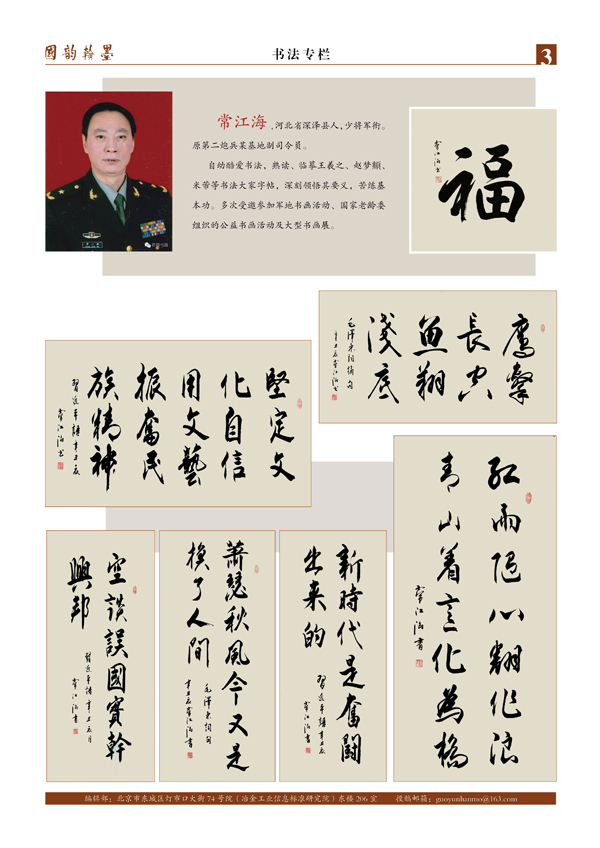 國韵翰墨
书法专栏
3
常江海，河北省深泽县人，少将军衔。
原第二炮兵某基地副司令员。
自幼酷爱书法，熟读、临摹王羲之、赵梦頫、
米带等书法大家字帖，深刻领悟其要义，苦练基
本功。多次受邀参加军地书画活动、国家老龄委
组织的公益书画活动及大型书画展。
福
常江海书
鹰擊
長空
魚翔
淺底
毛澤東詞摘句
辛丑辰常江海书
堅定文
化自信
用文藝
振奮民
族精神
習近平語辛丑辰
常江海书
红雨随心翻作浪
青山着意化為橋
常江海書
空談誤國實幹
興邦
習近平語辛丑辰月
常江海書
蕭瑟秋風今又是
换了人间
毛澤東詞句
辛丑辰常江海書
新時代是奮鬪
出来的
習近平語辛丑辰
常江海書
编辑部：北京市东城区灯市口大街74号院（冶金工业信息标准研究院）东楼206室 投稿邮箱：guoyunhanmo@163.com